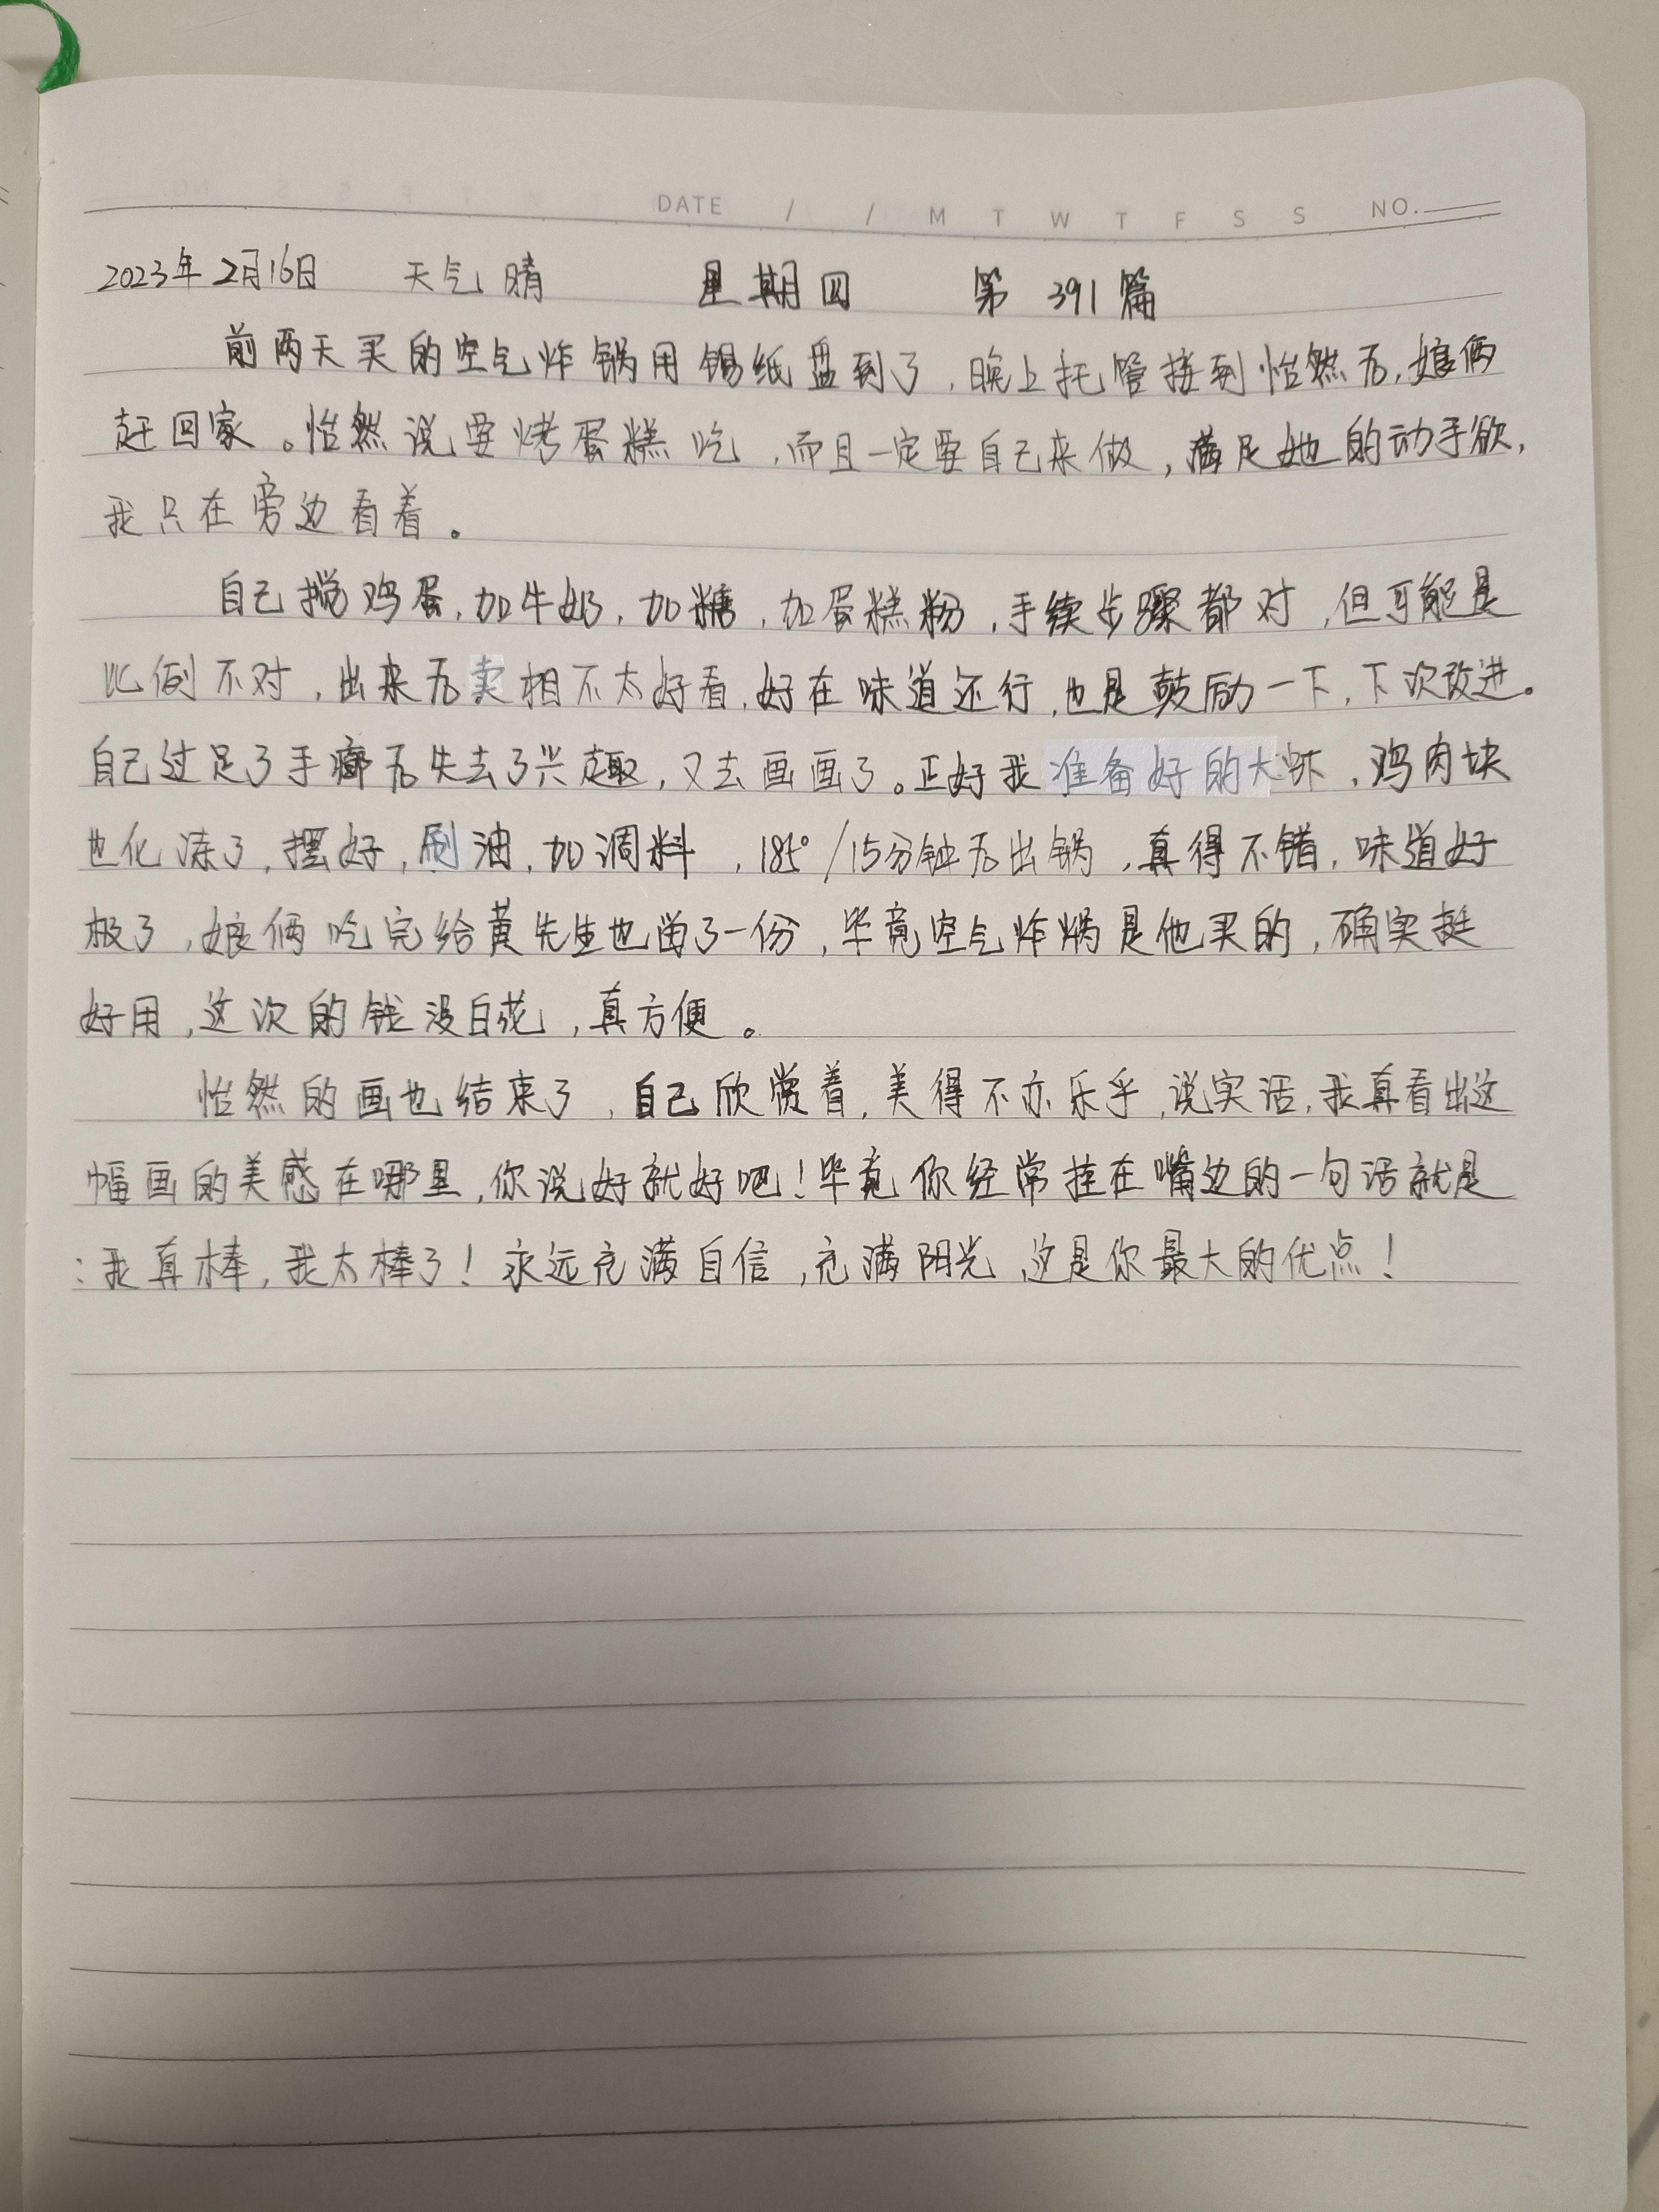 DATE / / M T W T F S S NO.
2023年2月16日 天气 晴 星期四 第 391 篇
前两天买的空气炸锅用锡纸盘到了,晚上托管接到怡然后,娘俩
赶回家。怡然说要烤蛋糕吃,而且一定要自己来做,满足她的动手欲,
我只在旁边看着。
自己搅鸡蛋,加牛奶,加糖,加蛋糕粉,手续步骤都对,但可能是
比例不对,出来后卖相不太好看,好在味道还行,也是鼓励一下,下次改进。
自己过足了手瘾后失去了兴趣,又去画画了。正好我准备好的大虾,鸡肉块
也化冻了,摆好,刷油,加调料,185°/15分钟后出锅,真得不错,味道好
极了,娘俩吃完给黄先生也留了一份,毕竟空气炸锅是他买的,确实挺
好用,这次的钱没白花,真方便。
怡然的画也结束了,自己欣赏着,美得不亦乐乎,说实话,我真看出这
幅画的美感在哪里,你说好就好吧!毕竟你经常挂在嘴边的一句话就是
:我真棒,我太棒了!永远充满自信,充满阳光,这是你最大的优点!